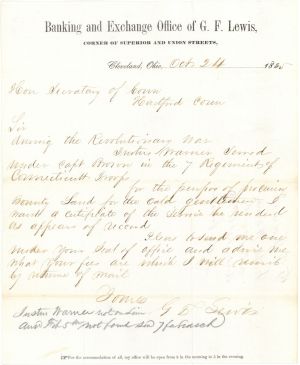 Banking and Exchange Office of G. F. Lewis,
CORNER OF SUPERIOR AND UNION STREETS,
Cleveland, Ohio, Oct 24 1855
Hon Secretary of Conn
Hartford Conn
Sir
during the Revolutionary War
Justus Warner Served
under Capt Brown in the 7 Regiment of
Connecticutt Troops
for the purpose of procuring
Bounty Land for the old gentleman I
want a certificate of the Service he rendered
as appears of record
Please to send me one
under your Seal of office and advise me
what your fees are which I will remit
by return of mail
Yours
G F Lewis
Justus Warner not on
not found
For the accommodation of all, my office will be open from 6 in the morning to 8 in the evening.